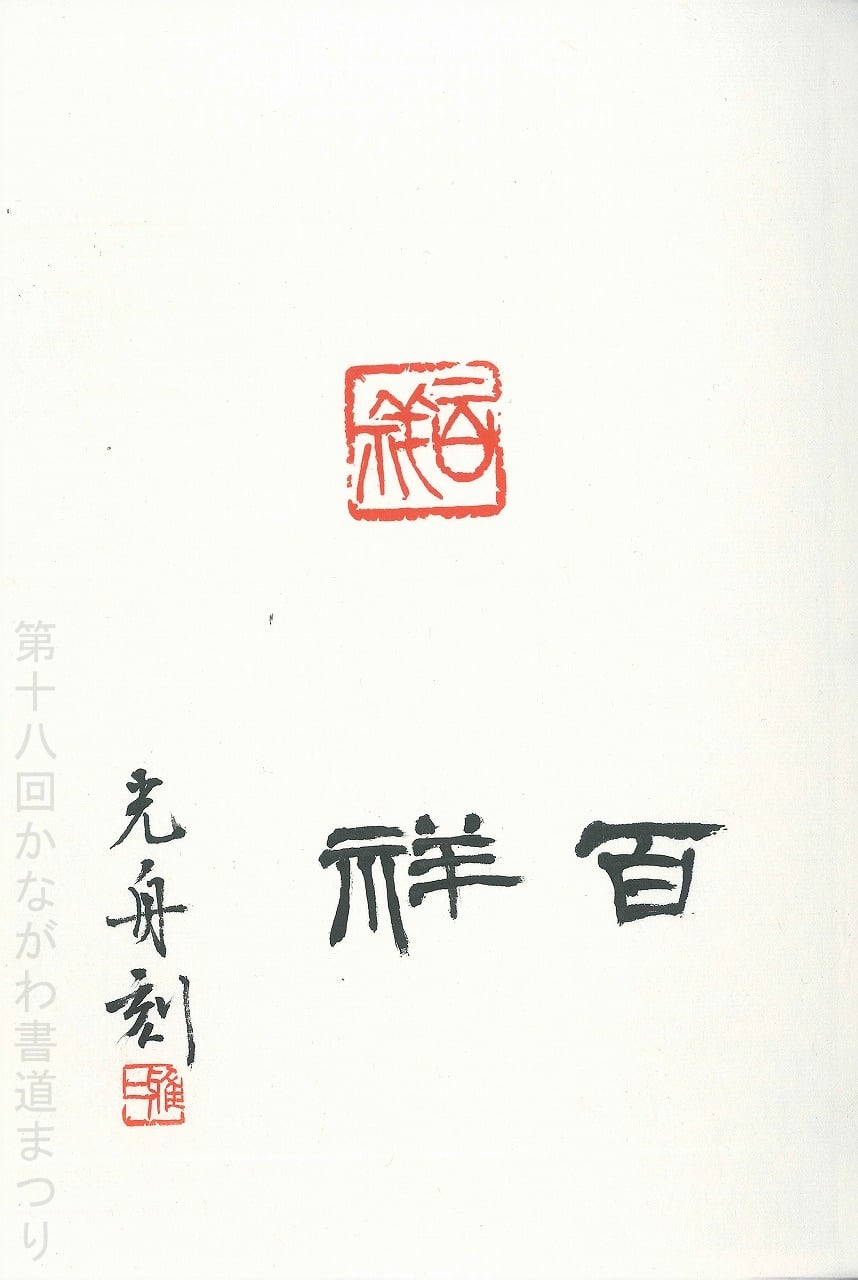 百祥
百祥
光舟刻
第十八回かながわ書道まつり